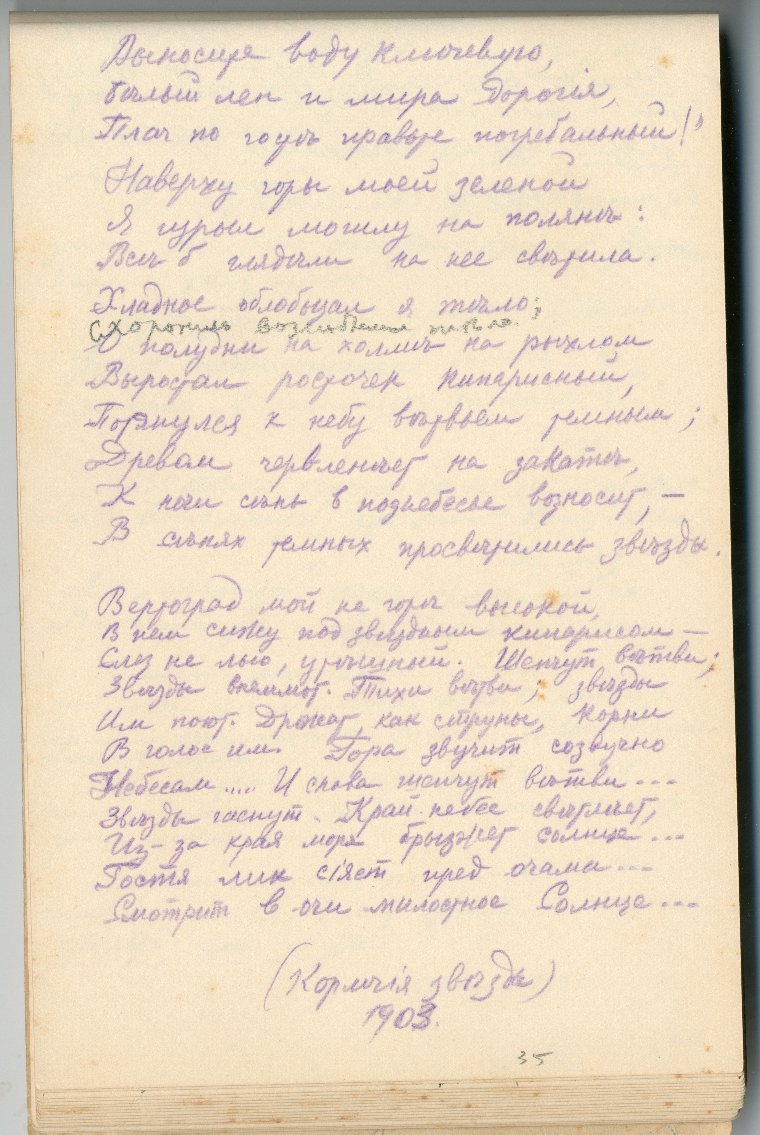 Выносите воду ключевую,
бѣлый лен и мира дорогія,
Плач по гостѣ правьте погребальный!"
Наверху горы моей зеленой
Я изрыл могилу на полянѣ:
Всѣ б глядѣли на нее свѣтила.
Хладное облобызал я тѣло;
Схоронил возлюбленное тѣло
О полудни на холмѣ на рыхлом
Выростал росточек кипарисный,
Потянулся к небу вѣтвьем темным;
Древом червленѣет на закатѣ,
К ночи сѣнь в поднебесье возносит, —
В сѣнях темных просвѣтились звѣзды.
Вертоград мой на горѣ высокой,
В нем сижу под звѣздным кипарисом —
Слез не лью, утѣшный. Шепчут вѣтви;
Звѣзды внемлют. Тихи вѣтви; звѣзды
Им поют. Дрожат, как струны, корни
В голос им. Гора звучит созвучно
Небесам .... И слова шепчут вѣтви ...
Звѣзды гаснут. Край небес свѣтлѣет,
Из-за края моря брызжет солнце ...
Гостя лик сіяет пред очами ...
Смотрит в очи милостное Солнце ...
(Кормчія звѣзды)
1903.
35